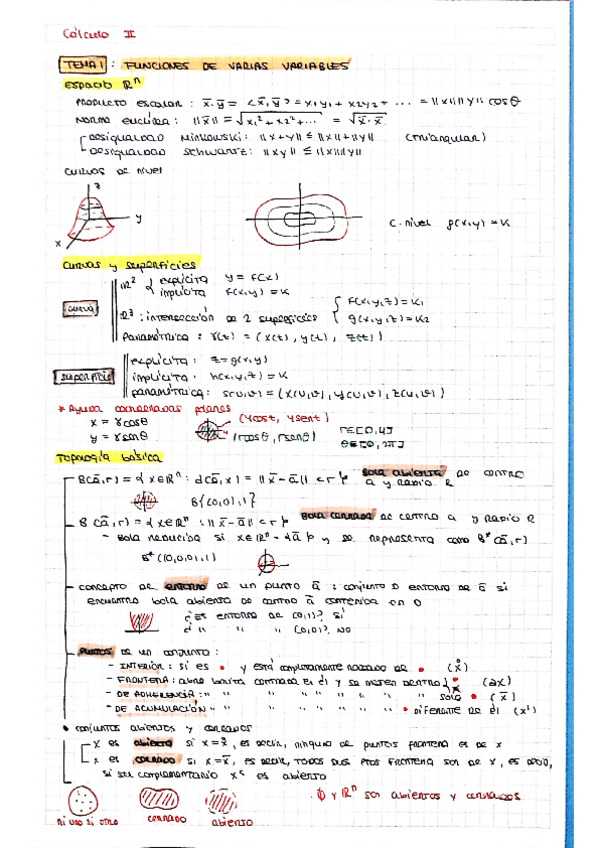 Cálculo II
TEMA 1 : FUNCIONES DE VARIAS VARIABLES
ESPACIO Rⁿ
PRODUCTO ESCALAR : x̄·ȳ = <x̄, ȳ> = x1y1 + x2y2 + ... = ||x|| ||y|| cos θ
NORMA EUCLÍDEA : ||x̄|| = √x1² + x2² + ... = √x̄·x̄
DESIGUALDAD MINKOWSKI : ||x+y|| ≤ ||x|| + ||y|| (TRIANGULAR)
DESIGUALDAD SCHWARTZ : ||xy|| ≤ ||x|| ||y||
CURVAS DE NIVEL
z
y
x
C. nivel f(x,y) = K
Curvas y superficies
CURVA
R² { explícita y = f(x)
implícita F(x,y) = K
R³ : intersección de 2 superficies { F(x,y,z) = K1
g(x,y,z) = K2
Paramétrica : γ(t) = (x(t), y(t), z(t))
SUPERFICIE
explícita : z = g(x,y)
implícita : h(x,y,z) = K
paramétrica : S(u,v) = (x(u,v), y(u,v), z(u,v))
* Ayuda coordenadas polares
x = r cos θ
y = r sen θ
(4cost, 4sent)
(r cos θ, r sen θ)
r∈[0,4]
θ∈[0,2π]
Topología básica
B(ā,r) = { x∈Rⁿ : d(ā,x) = ||x̄-ā|| < r } BOLA ABIERTA DE CENTRO
a y RADIO R
B{(0,0),1}
B(ā,r) = { x∈Rⁿ : ||x̄-ā|| < r } BOLA CERRADA DE CENTRO a y RADIO R
- BOLA REDUCIDA SI x∈Rⁿ-{ā} y se representa como B*(ā,r)
B*((0,0),1)
- CONCEPTO DE ENTORNO DE UN PUNTO ā : conjunto O entorno de ā si
encuentro bola abierta de centro ā contenida en O
¿ES ENTORNO DE (0,1)? SÍ
¿" " " (0,0)? NO
- PUNTOS DE UN CONJUNTO :
- INTERIOR : SI ES • y está completamente rodeado de • (x̊)
- FRONTERA : (∂x)
- DE ADHERENCIA : " " " " " " " " solo • (x̄)
- DE ACUMULACIÓN " " " " " " " • DIFERENTE DE ÉL (x')
• CONJUNTOS ABIERTOS Y CERRADOS
x es ABIERTO si x = x̊, ES DECIR, ninguno de puntos frontera es de x
x es CERRADO si x = x̄, ES DECIR, TODOS SUS PTOS FRONTERA SON DE x, ES DECIR,
si su complementario xᶜ es abierto
ni uno ni otro
cerrado
abierto
∅ y Rⁿ son abiertos y cerrados